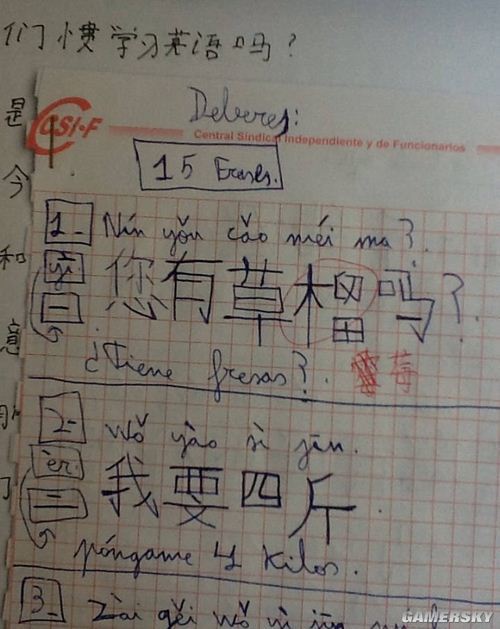 们惯学习英语吗?
是
今
和
意
Deberes:
CSI·F
Central Sindical Independiente y de Funcionarios
15 Frases.
1_ Nín yǒu cǎo méi ma?
yī 您有草 吗?
一
¿Tiene fresas? 莓
2_ Wǒ yào sì jīn.
èr 我要四斤
二
póngame 4 kilos.
3_ Zài gěi wǒ
GAMERSKY